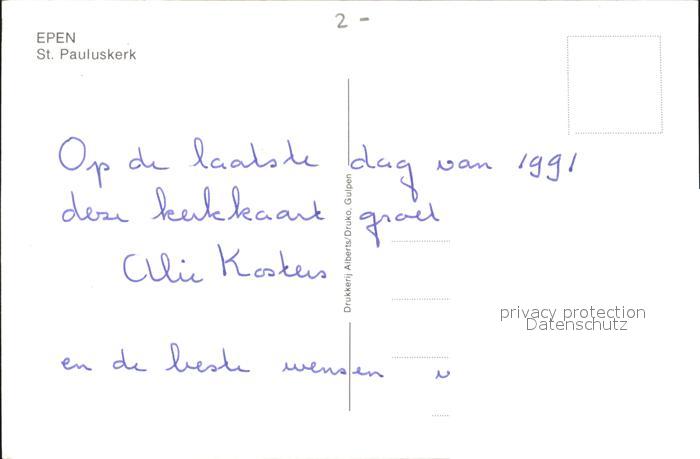 2 -
EPEN
St. Pauluskerk
Op de laatste dag van 1991
deze kerkkaart groet
Alie Kosters
en de beste wensen v
Drukkerij Alberts/Druko, Gulpen
privacy protection
Datenschutz